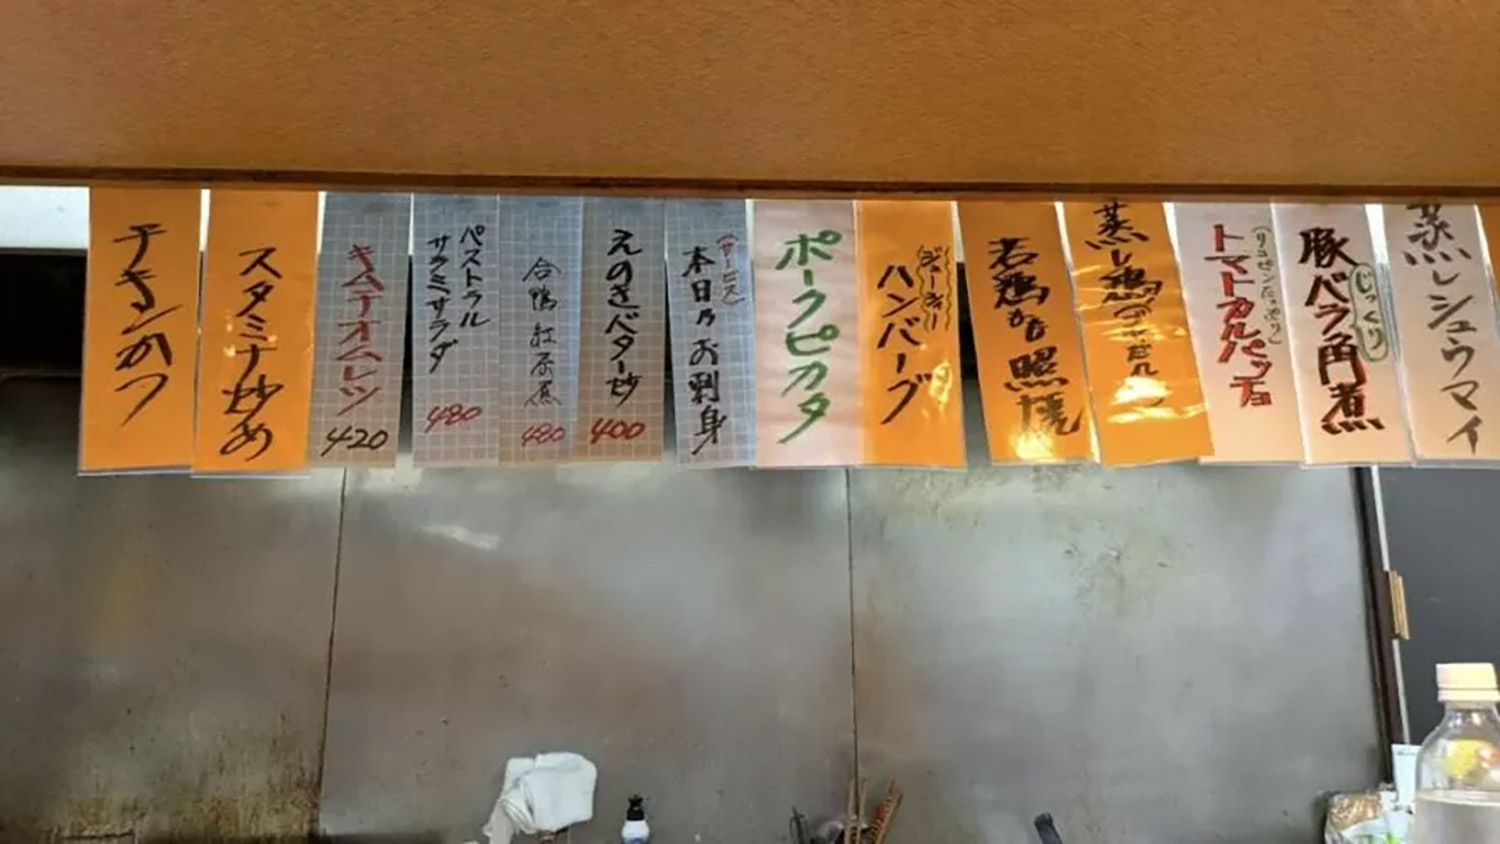 チキンかつ
スタミナ炒め
キムチオムレツ
420
パストラル
サラミサラダ
480
合鴨紅茶煮
480
えのきバター炒
400
(サービス)
本日乃お刺身
ポークピカタ
ジューシー
ハンバーグ
若鶏もも照焼
蒸し鶏
トマトカルパッチョ
じっくり
豚バラ角煮
蒸しシュウマイ